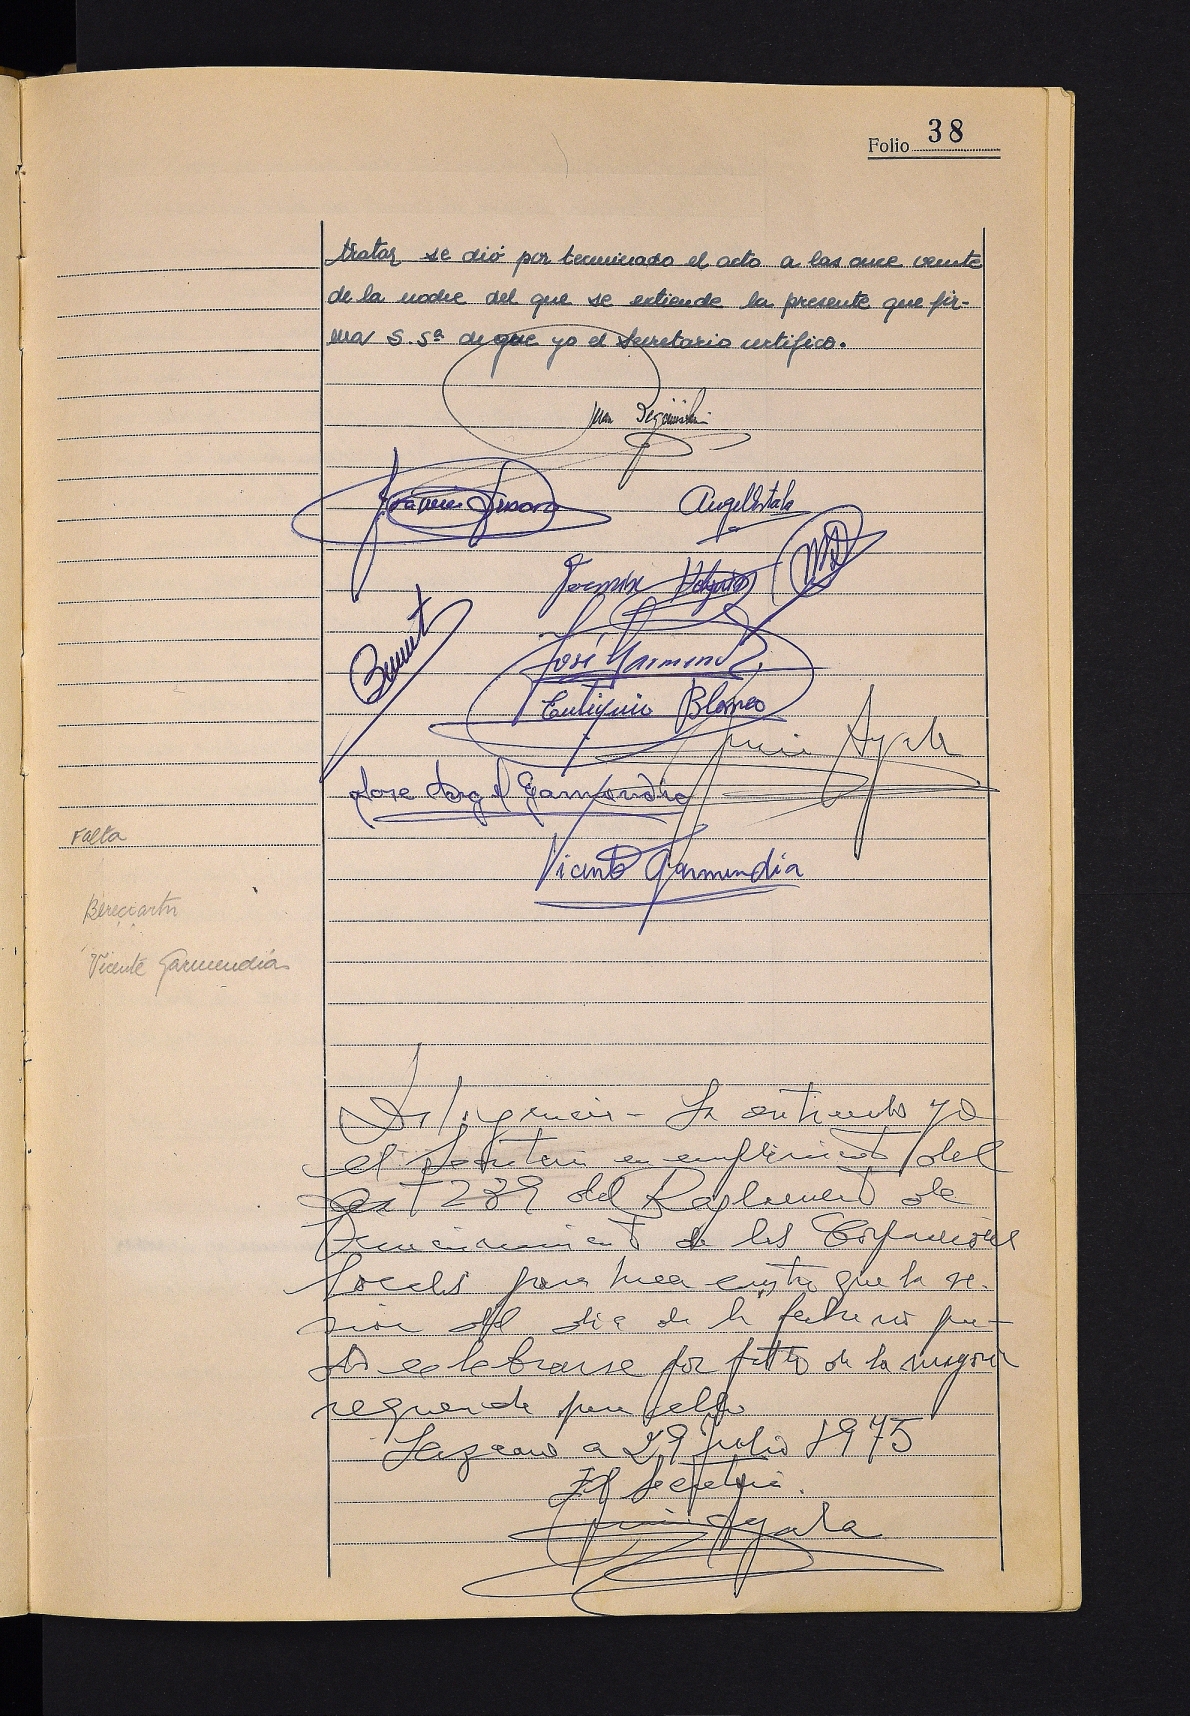 Folio 38
tratar se dió por terminado el acto a las once veinte
de la noche del que se extiende la presente que fir-
man S. Sª de que yo el Secretario certifico.
Juan
Angel
Fermín
José Garmendia
Eutiquio Blanco
Ayala
Jose Angel Garmendia
Vicente Garmendia
Falta
Bereciartu
Vicente Garmendia
Diligencia - La extiendo yo
el Secretario en cumplimiento del
art 239 del Reglamento de
Funcionamiento de las Corporaciones
Locales para hacer constar que la se-
sion del dia de la fecha no pu-
do celebrarse por falta de la mayoria
requerida para ello
Lazcano a 29 Julio 1975
El Secretario.
Ayala